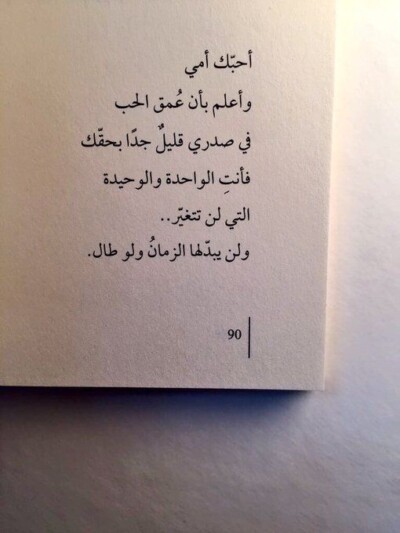 أحبّك أمي
وأعلم بأن عُمق الحب
في صدري قليلٌ جدًا بحقّك
فأنتِ الواحدة والوحيدة
التي لن تتغيّر..
ولن يبدّلها الزمانُ ولو طال.
90